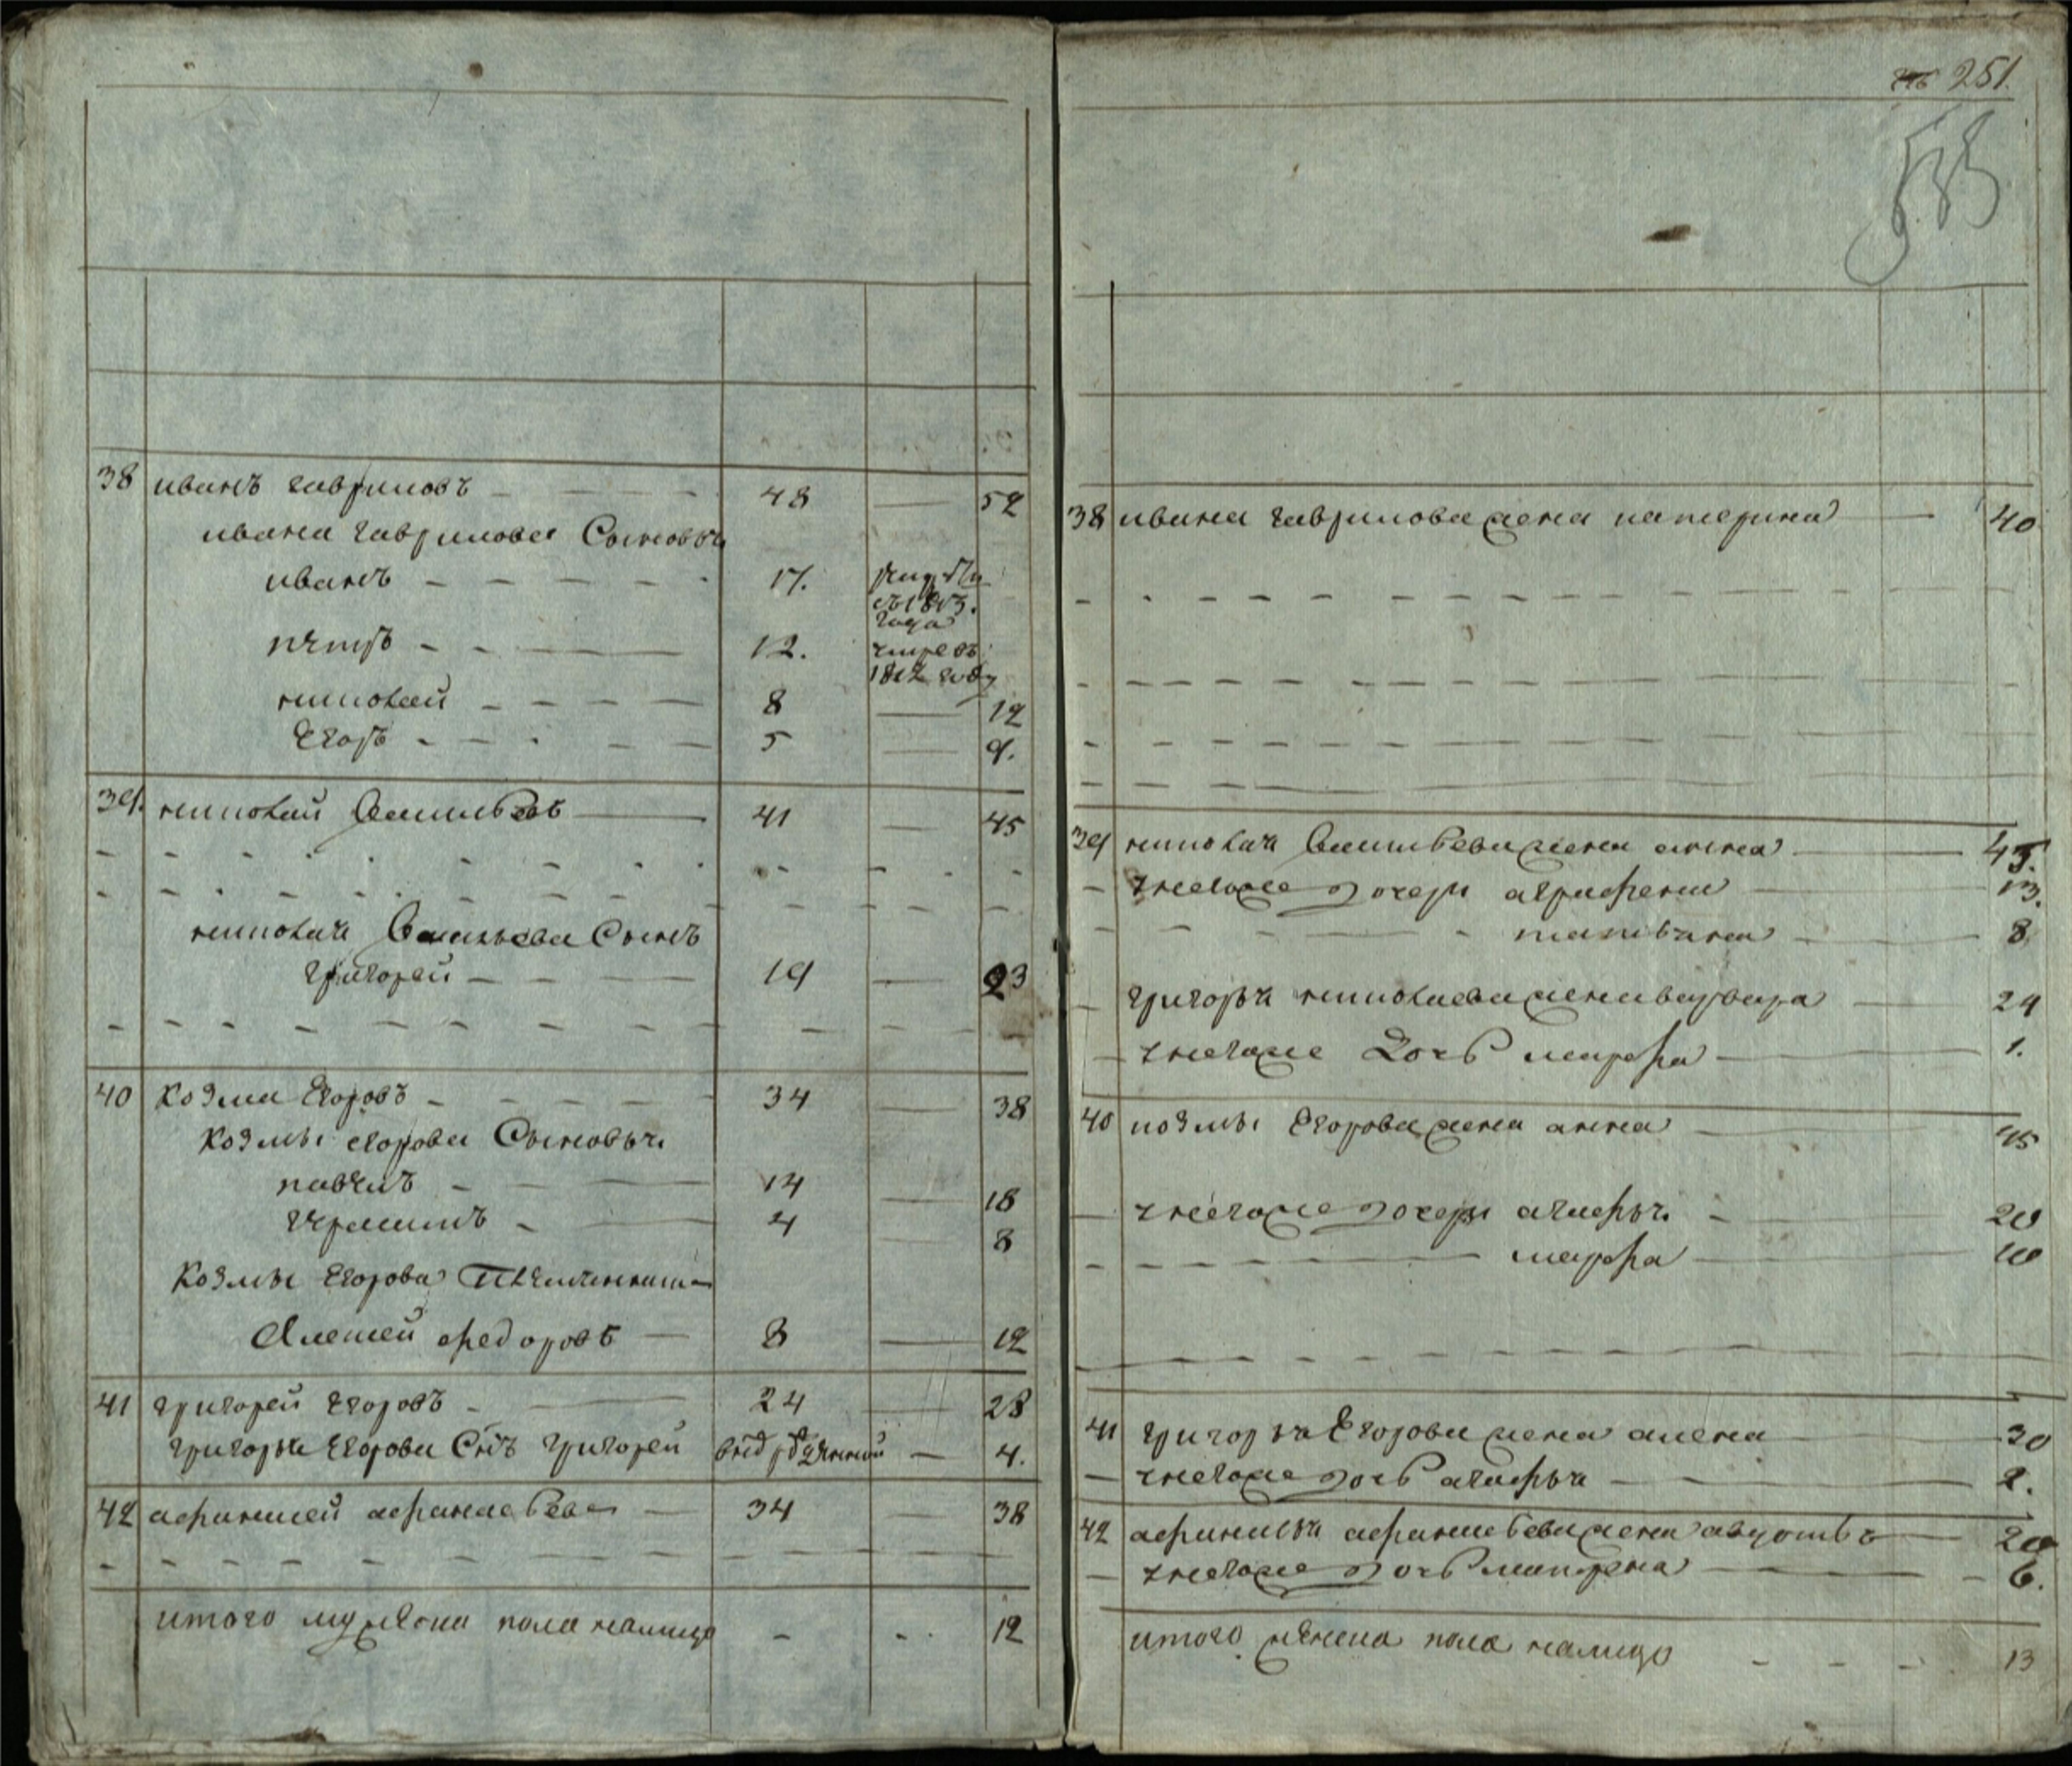 251.
38 иванъ гавриловъ 48 52
ивана гаврилова Сыновья
иванъ 17.
съ 1813.
года
петръ 12. умре въ
1812 году
николай 8 12
Егоръ 5 9.
39. николай Васильевъ 41 45
николая Васильева Сынъ
григорей 19 23
40 Козма Егоровъ 34 38
Козмы егорова Сыновья
павелъ 14 18
герасимъ 4 8
Козмы Егорова Племянникъ
Алексей федоровъ 8 12
41 григорей Егоровъ 24 28
григорья Егорова Сынъ григорей 4.
42 афанасей афанасьевъ 34 38
итого мужеска пола налицо 12
38 ивана гаврилова жена катерина 40
39 николая Васильева жена анна 45.
у него же дочери аграфена 13.
татьяна 8
григорья николаева жена варвара 24
у него же Дочь марфа 1.
40 козмы Егорова жена анна 45
у него же дочери агафья 20
марфа 10
41 григорья Егорова жена алена 30
у него же дочь агафья 2.
42 афанасья афанасьева жена авдотья 20
у него же дочь матрена 6.
итого женска пола налицо 13